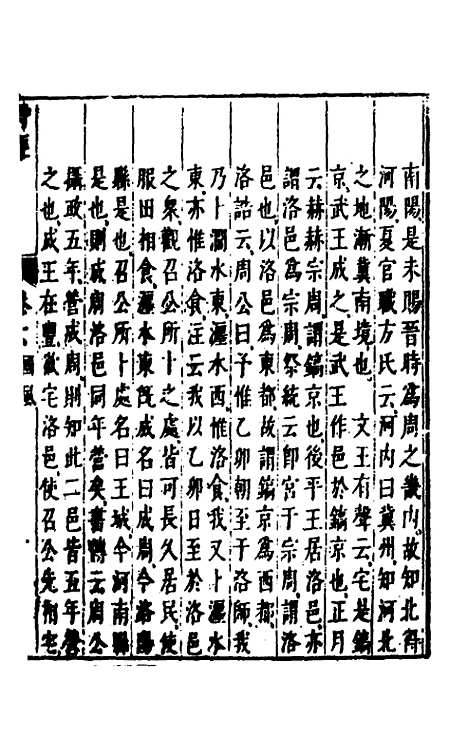 南陽是未賜晉時爲周之畿内故知北得
河陽夏官職方氏云河内曰冀州知河北
之地漸冀南境也　文王有聲云宅是鎬
京武王成之是武王作邑於鎬京也正月
云赫赫宗周謂鎬京也後平王居洛邑亦
謂洛邑爲宗周祭統云卽宮于宗周謂洛
邑也以洛邑爲東都故謂鎬京爲西都
洛誥云周公曰予惟乙卯朝至于洛師我
乃卜澗水東瀍水西惟洛食我又卜瀍水
東亦惟洛食注云我以乙卯日至於洛邑
之衆觀召公所卜之處皆可長久居民使
服田相食瀍水東旣成名曰成周今洛陽
縣是也召公所卜處名曰王城今河南縣
是也則成周洛邑同年營矣書傳云周公
攝政五年營成周則知此二邑皆五年營
之也成王在豐欲宅洛邑使召公先相宅
卷六國風